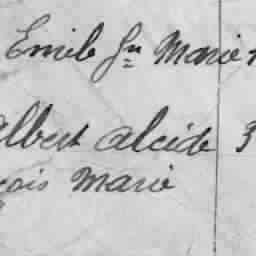 Emile Jn Marie
Albert Alcide 3
çois Marie